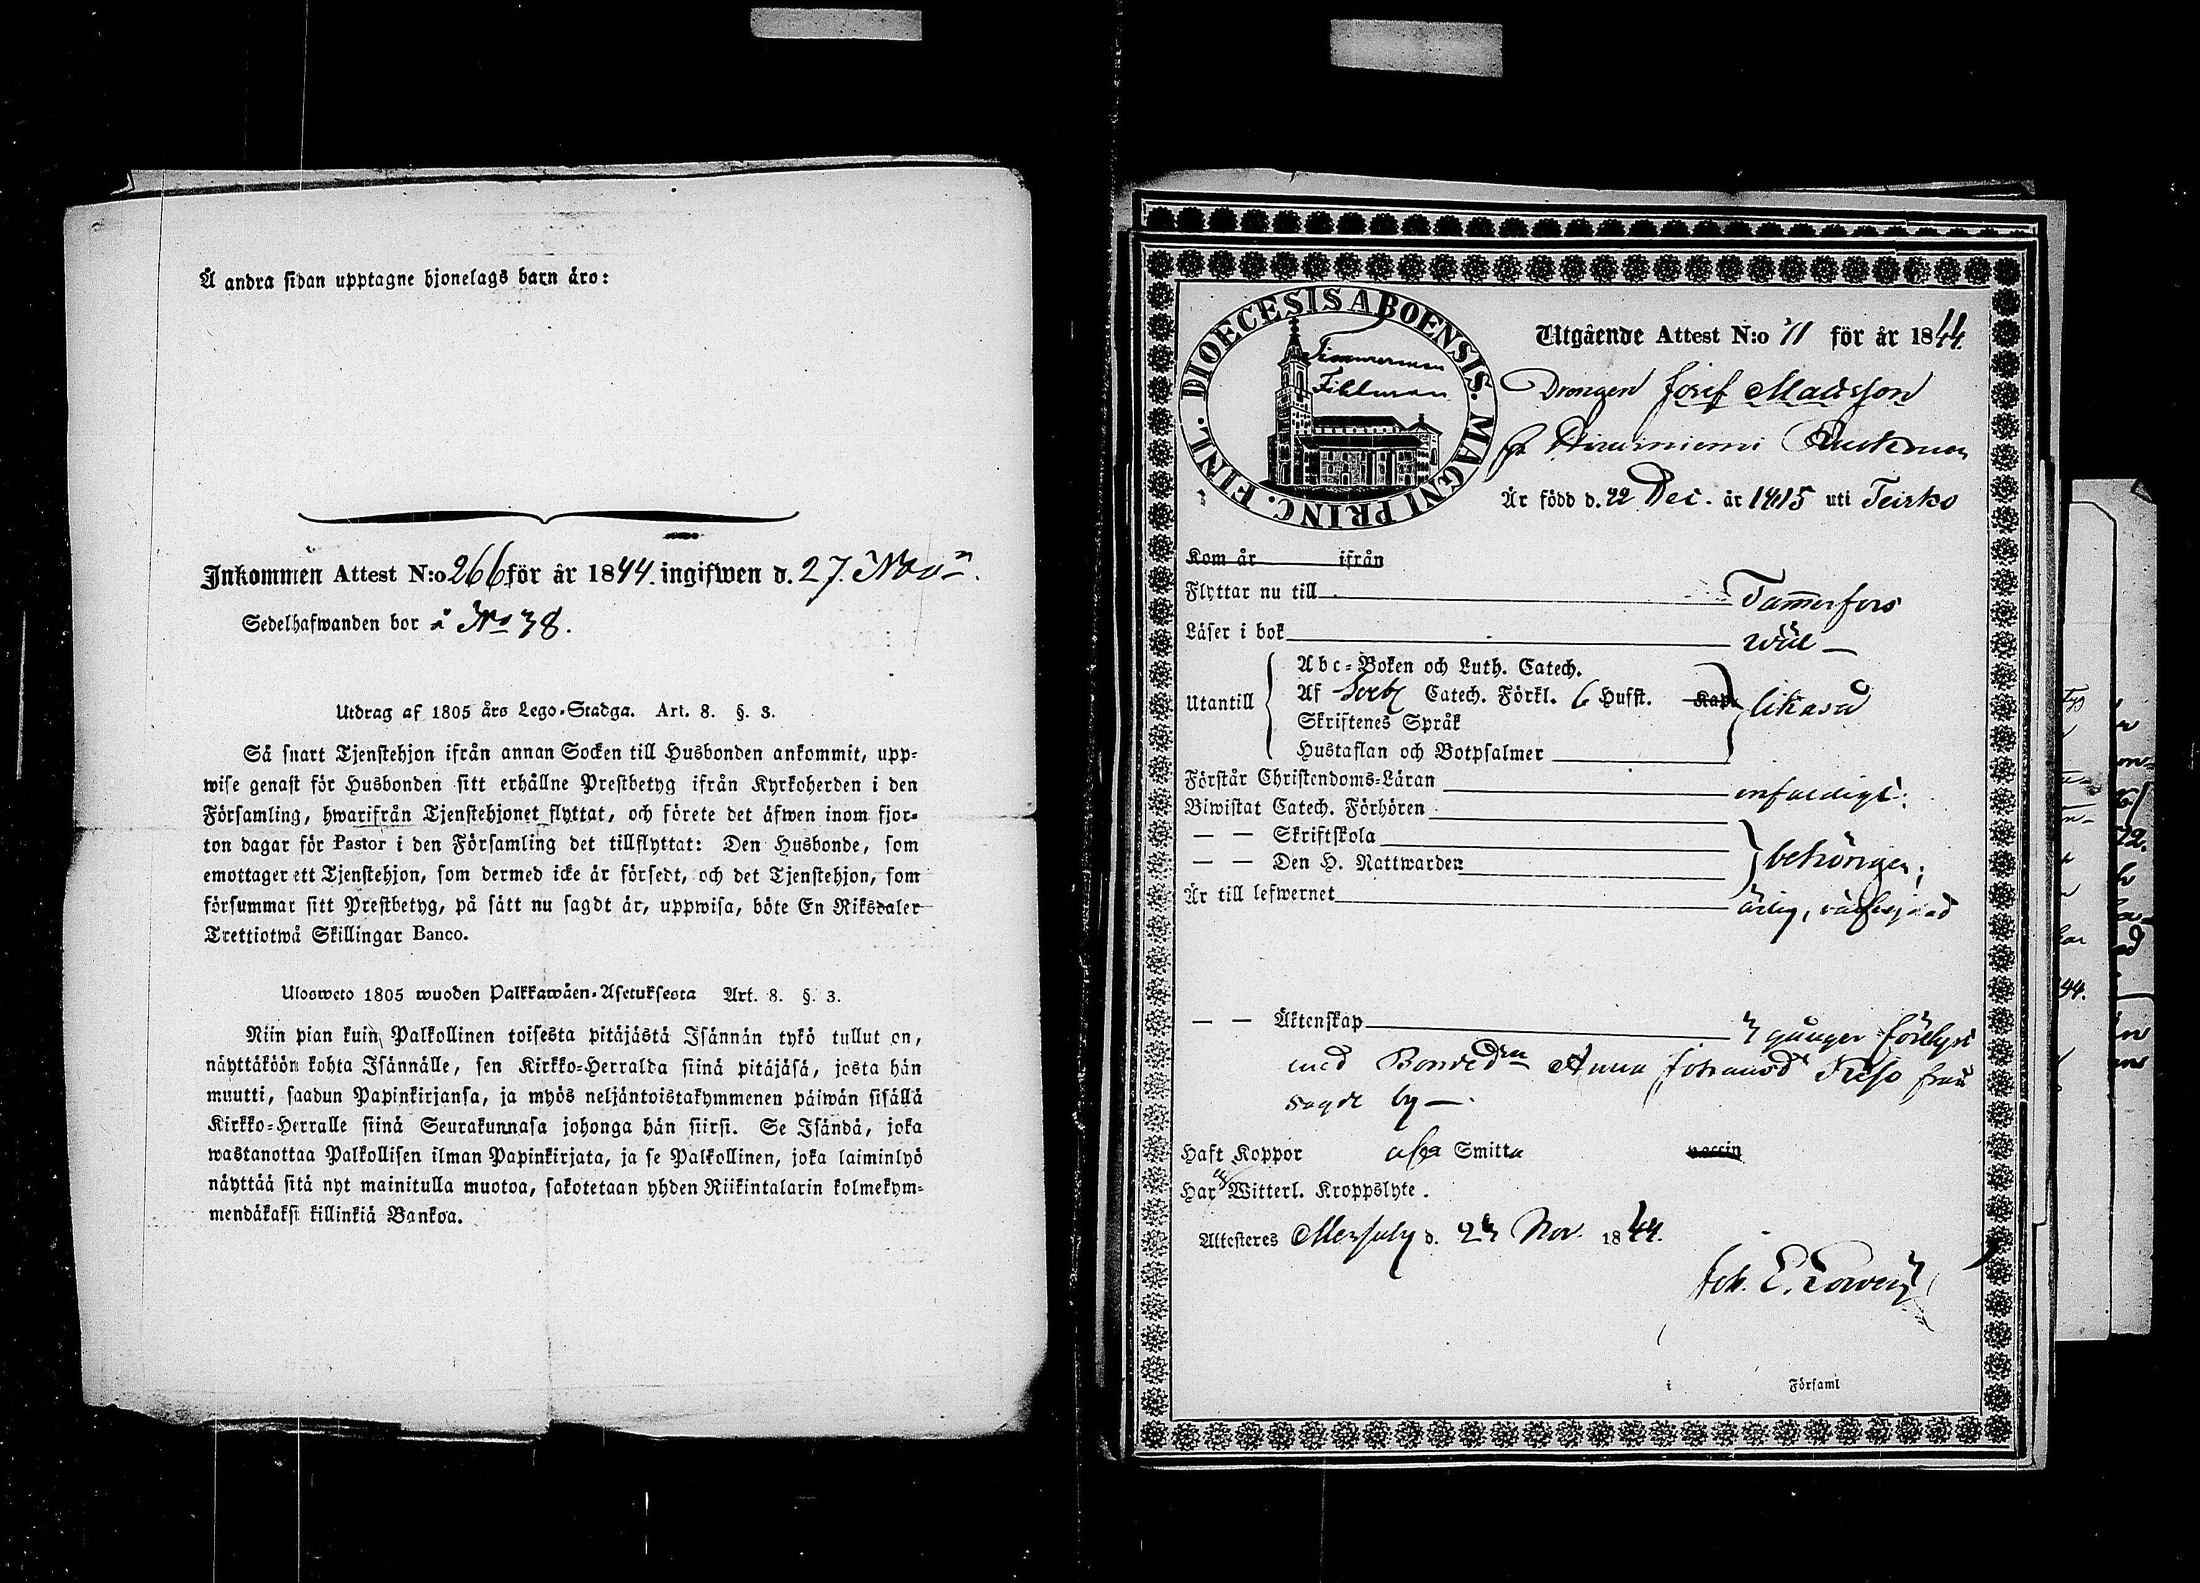 Å andra sidan upptagne hjonelags barn äro:
Inkommen Attest N:o 266 för år 1844. ingifwen d. 27. Nov.
Sedelhafwanden bor å No 38.
Utdrag af 1805 års Lego-Stadga. Art. 8. §. 3.
Så snart Tjenstehjon ifrån annan Socken till Husbonden ankommit, upp-
wise genast för Husbonden sitt erhållne Prestbetyg ifrån Kyrkoherden i den
Församling, hwarifrån Tjenstehjonet flyttat, och förete det äfwen inom fjor-
ton dagar för Pastor i den Församling det tillflyttat: Den Husbonde, som
emottager ett Tjenstehjon, som dermed icke är försedt, och det Tjenstehjon, som
försummar sitt Prestbetyg, på sätt nu sagdt är, uppwisa, böte En Riksdaler
Trettiotwå Skillingar Banco.
Ulosweto 1805 wuoden Palkkawäen-Asetuksesta Art. 8. §. 3.
Niin pian kuin Palkollinen toisesta pitäjästä Isännän tykö tullut on,
näyttäköön kohta Isännälle, sen Kirkko-Herralda siinä pitäjäsä, josta hän
muutti, saadun Papinkirjansa, ja myös neljäntoistakymmenen päiwän sisällä
Kirkko-Herralle siinä Seurakunnasa johonga hän siirsi. Se Isändä, joka
wastanottaa Palkollisen ilman Papinkirjata, ja se Palkollinen, joka laiminlyö
näyttää sitä nyt mainitulla muotoa, sakotetaan yhden Riikintalarin kolmekym-
mendäkaksi killinkiä Bankoa.
DIOECESIS ABOENSIS. MAGNI PRINC. FINL.
Timmerman
Fihlman
Utgående Attest N:o 71 för år 1844.
Drengen Josef Madsson
Är född d. 22 Dec. år 1815 uti Teisko
Kom år ifrån
Flyttar nu till Tammerfors
Läser i bok wäl
Utantill
Abc-Boken och Luth. Catech.
Af Catech. Förkl. 6 Hufst. Kap.
Skriftenes Språk
Hustaflan och Botpsalmer
likaså
Förstår Christendoms-Läran enfaldigt.
Biwistat Catech. Förhören
— — Skriftskola
— — Den H. Nattwarden
behörigen;
Är till lefwernet ärlig,
— — Äktenskap 3 gånger förlyst
med Bonded:n Anna Johansd:r från
sagde by —.
Haft Koppor Smitta vaccin
Har Witterl. Kroppslyte.
Attesteres Messuby d. 23 Nov. 1844.
i Församl